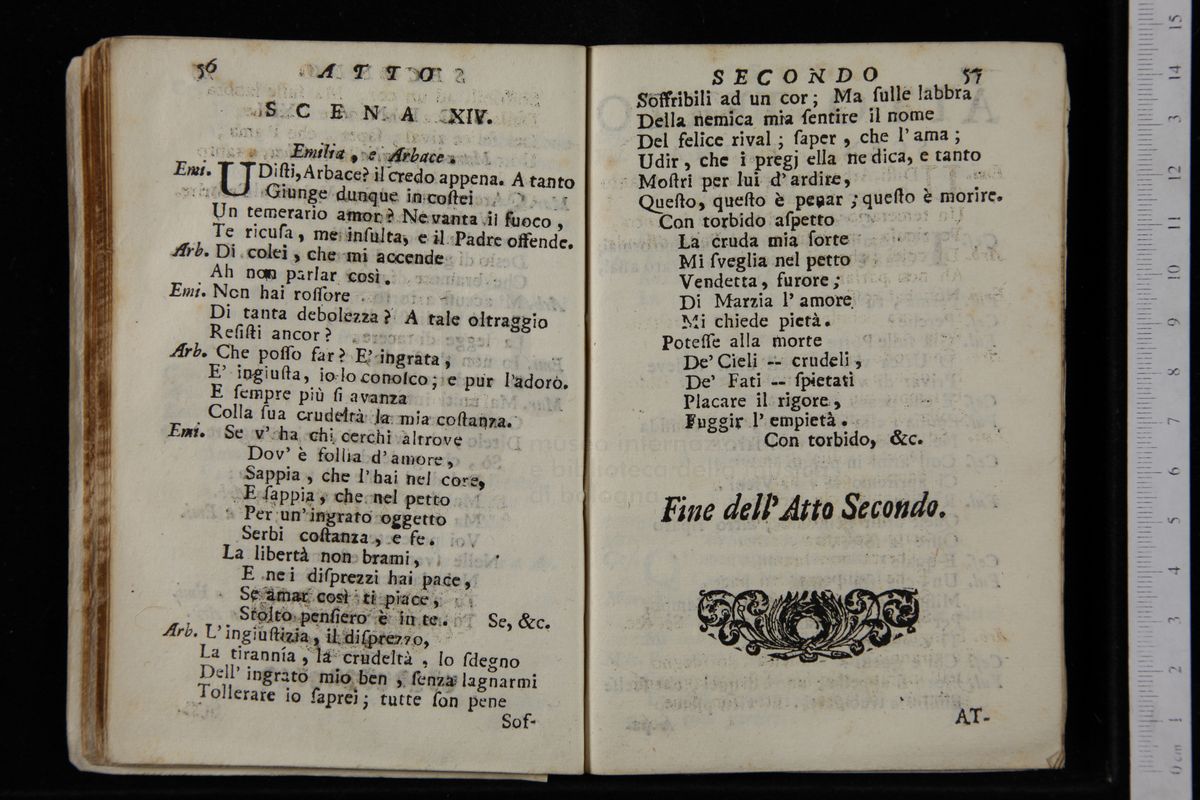 56 ATTO
SCENA XIV.
Emilia, e Arbace.
Emi. UDiſti, Arbace? il credo appena. A tanto
Giunge dunque in coſtei
Un temerario amor? Ne vanta il fuoco,
Te ricuſa, me inſulta, e il Padre offende.
Arb. Di colei, che mi accende
Ah non parlar così.
Emi. Non hai roſſore
Di tanta debolezza? A tale oltraggio
Reſiſti ancor?
Arb. Che poſſo far? E' ingrata,
E' ingiuſta, io lo conoſco; e pur l'adoro.
E ſempre più ſi avanza
Colla ſua crudeltà la mia coſtanza.
Emi. Se v' ha chi cerchi altrove
Dov' è follia d'amore,
Sappia, che l'hai nel core,
E ſappia, che nel petto
Per un' ingrato oggetto
Serbi coſtanza, e fe.
La libertà non brami,
E ne i diſprezzi hai pace,
Se amar così ti piace,
Stolto penſiero è in te. Se, &c.
Arb. L'ingiuſtizia, il diſprezzo,
La tirannía, la crudeltà, lo ſdegno
Dell' ingrato mio ben, ſenza lagnarmi
Tollerare io ſaprei; tutte ſon pene
Sof-
SECONDO 57
Soffribili ad un cor; Ma ſulle labbra
Della nemica mia ſentire il nome
Del felice rival; ſaper, che l' ama;
Udir, che i pregj ella ne dica, e tanto
Moſtri per lui d' ardire,
Queſto, queſto è penar; queſto è morire.
Con torbido aſpetto
La cruda mia ſorte
Mi ſveglia nel petto
Vendetta, furore;
Di Marzia l' amore
Mi chiede pietà.
Poteſſe alla morte
De' Cieli -- crudeli,
De' Fati -- ſpietati
Placare il rigore,
Fuggir l' empietà.
Con torbido, &c.
Fine dell' Atto Secondo.
AT-
museo internazionale
e biblioteca della
di bologna
15
14
13
12
11
10
9
8
7
6
5
4
3
2
1
0 cm